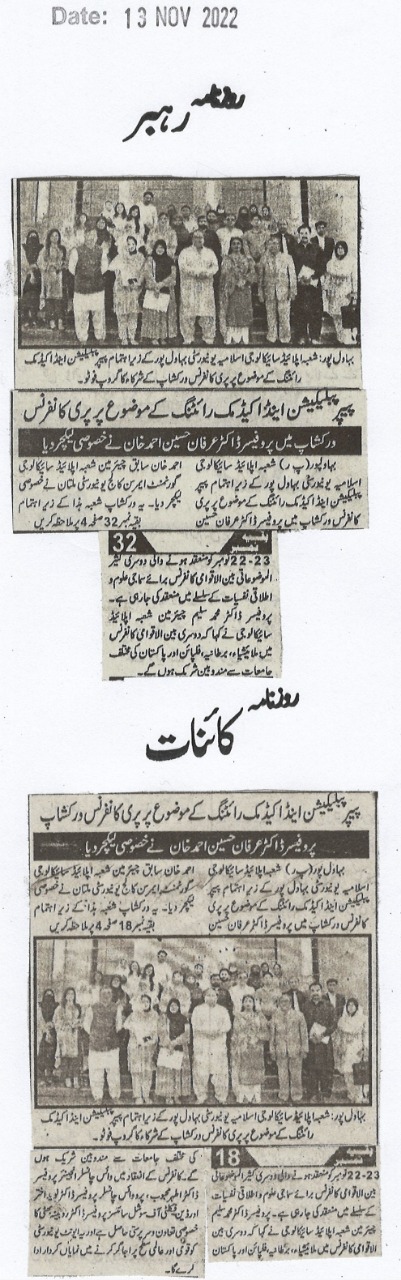 Date: 13 NOV 2022
روزنامہ رہبر
بہاول پور: شعبہ اپلائیڈ سائیکالوجی اسلامیہ یونیورسٹی بہاول پور کے زیر اہتمام پیپر پبلیکیشن اینڈ اکیڈمک
رائٹنگ کے موضوع پر پری کانفرنس ورکشاپ کے شرکاء کا گروپ فوٹو۔
پیپر پبلیکیشن اینڈ اکیڈمک رائٹنگ کے موضوع پر پری کانفرنس
ورکشاپ میں پروفیسر ڈاکٹر عرفان حسین احمد خان نے خصوصی لیکچر دیا
بہاولپور (پ ر) شعبہ اپلائیڈ سائیکالوجی
اسلامیہ یونیورسٹی بہاول پور کے زیر اہتمام پیپر
پبلیکیشن اینڈ اکیڈمک رائٹنگ کے موضوع پر پری
کانفرنس ورکشاپ میں پروفیسر ڈاکٹر عرفان حسین
احمد خان سابق چیئرمین شعبہ اپلائیڈ سائیکالوجی
گورنمنٹ ایمرسن کالج یونیورسٹی ملتان نے خصوصی
لیکچر دیا۔ یہ ورکشاپ شعبہ ہذا کے زیر اہتمام
بقیہ نمبر 32 صفحہ 4 پر ملاحظہ کریں
بقیہ نمبر 32
22-23 نومبر کو منعقد ہونے والی دوسری کثیر
الموضوعاتی بین الاقوامی کانفرنس برائے سماجی علوم و
اطلاقی نفسیات کے سلسلے میں منعقد کی جا رہی ہے۔
پروفیسر ڈاکٹر محمد سلیم چیئرمین شعبہ اپلائیڈ
سائیکالوجی نے کہا کہ دوسری بین الاقوامی کانفرنس
میں ملائیشیاء، برطانیہ، فلپائن اور پاکستان کی مختلف
جامعات سے مندوبین شریک ہوں گے۔
روزنامہ کائنات
پیپر پبلیکیشن اینڈ اکیڈمک رائٹنگ کے موضوع پر پری کانفرنس ورکشاپ
پروفیسر ڈاکٹر عرفان حسین احمد خان نے خصوصی لیکچر دیا
بہاول پور (پ ر) شعبہ اپلائیڈ سائیکالوجی
اسلامیہ یونیورسٹی بہاول پور کے زیر اہتمام پیپر
پبلیکیشن اینڈ اکیڈمک رائٹنگ کے موضوع پر پری
کانفرنس ورکشاپ میں پروفیسر ڈاکٹر عرفان حسین
احمد خان سابق چیئرمین شعبہ اپلائیڈ سائیکالوجی
گورنمنٹ ایمرسن کالج یونیورسٹی ملتان نے خصوصی
لیکچر دیا۔ یہ ورکشاپ شعبہ ہذا کے زیر اہتمام
بقیہ نمبر 18 صفحہ 4 پر ملاحظہ کریں
بہاول پور: شعبہ اپلائیڈ سائیکالوجی اسلامیہ یونیورسٹی بہاول پور کے زیر اہتمام پیپر پبلیکیشن اینڈ اکیڈمک
رائٹنگ کے موضوع پر پری کانفرنس ورکشاپ کے شرکاء کا گروپ فوٹو۔
بقیہ نمبر 18
22-23 نومبر کو منعقد ہونے والی دوسری کثیر الموضوعاتی
بین الاقوامی کانفرنس برائے سماجی علوم و اطلاقی نفسیات
کے سلسلے میں منعقد کی جا رہی ہے۔ پروفیسر ڈاکٹر محمد سلیم
چیئرمین شعبہ اپلائیڈ سائیکالوجی نے کہا کہ دوسری بین
الاقوامی کانفرنس میں ملائیشیاء، برطانیہ، فلپائن اور پاکستان
کی مختلف جامعات سے مندوبین شریک ہوں
گے۔ کانفرنس کے انعقاد میں وائس چانسلر انجینئر پروفیسر
ڈاکٹر اطہر محبوب، پرو وائس چانسلر پروفیسر ڈاکٹر نوید اختر
اور ڈین فیکلٹی آف سوشل سائنسز پروفیسر ڈاکٹر روبینہ بھٹی کا
خصوصی تعاون اور سرپرستی حاصل ہے اور یہ ایونٹ یونیورسٹی
کو قومی اور عالمی سطح پر اجاگر کرنے میں نمایاں کردار ادا
کرے گا۔